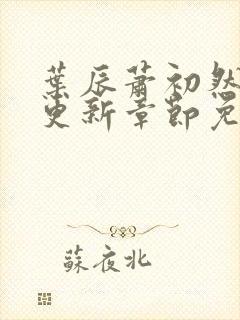 葉辰蕭初然
更新章節免
蘇夜北